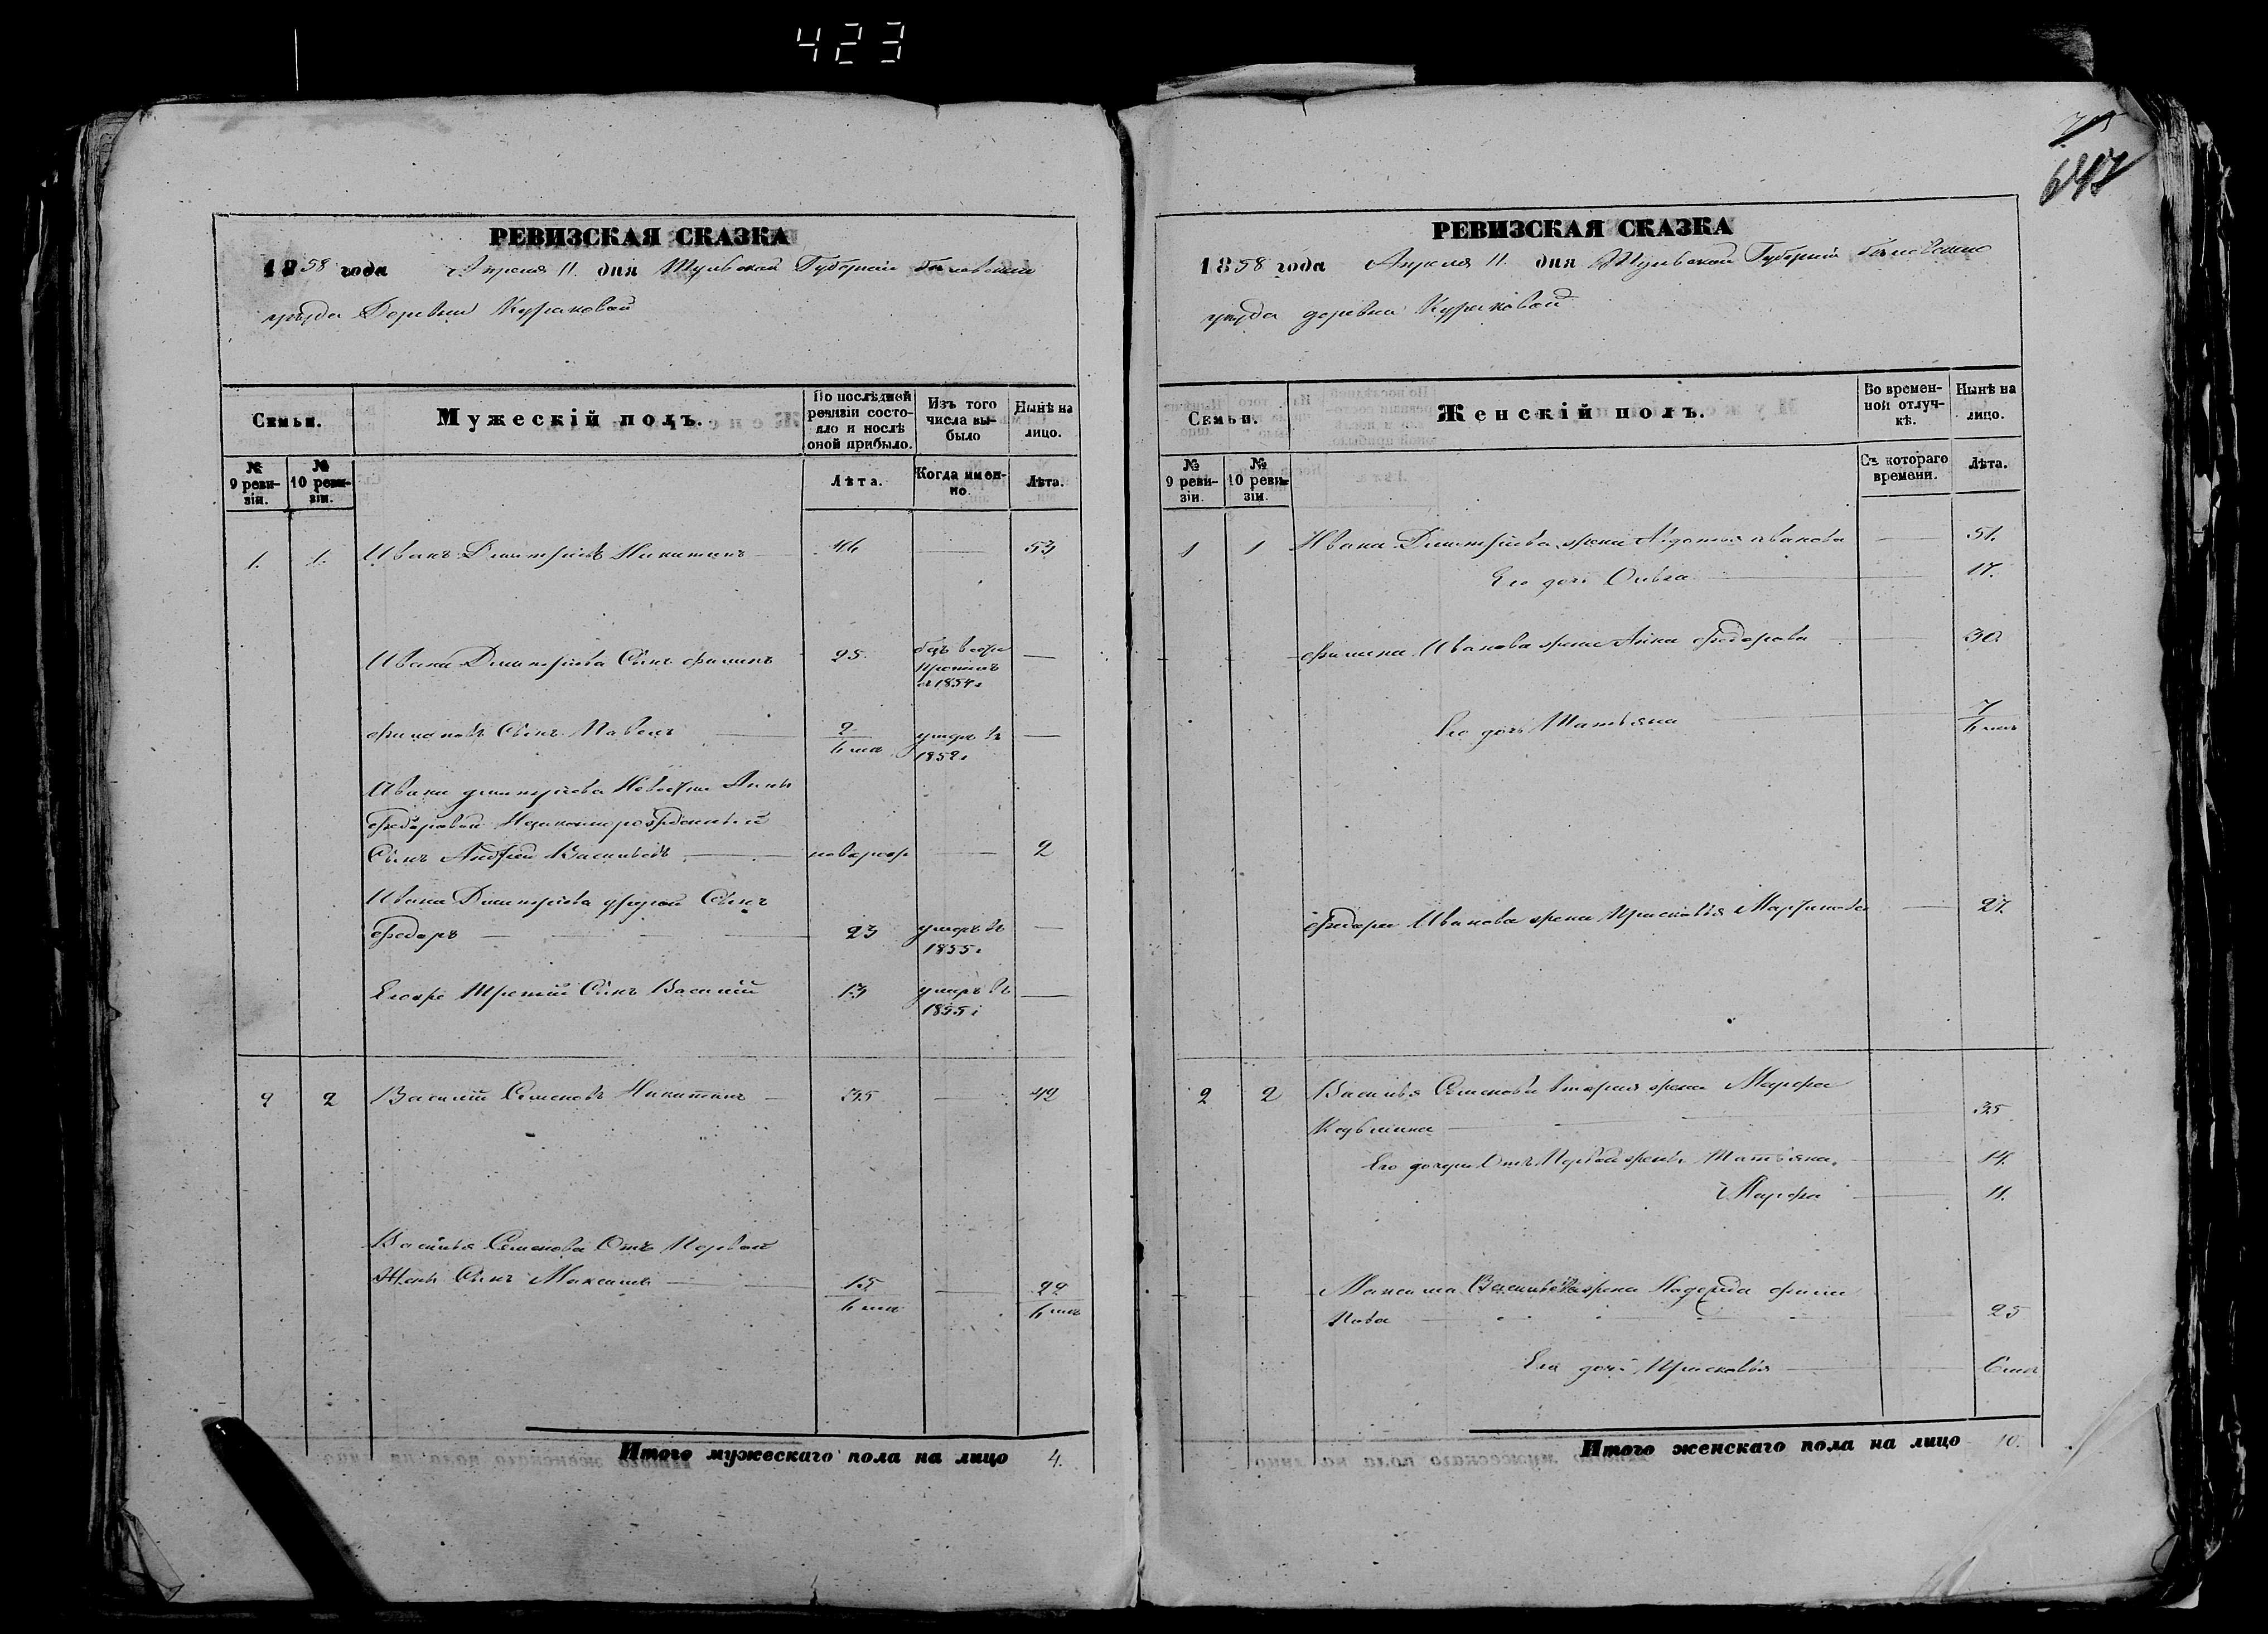 423
647
РЕВИЗСКАЯ СКАЗКА
1858 года Апреля 11. дня Тульской Губернии Белевскаго
уезда Деревни Кураковой
Семьи.
Мужескій полъ.
По послѣдней ревизіи состояло и послѣ оной прибыло.
Изъ того числа выбыло
Нынѣ на лицо.
№ 9 ревизіи.
№ 10 ревизіи.
Лѣта.
Когда именно.
Лѣта.
1. 1. Иванъ Дмитріевъ Никитинъ 46 53
Ивана Дмитріева Сынъ Филипъ 25
1854г
Филиповъ Сынъ Павелъ 2/6 мес умеръ въ
1852г
Ивана дмитріева Невестки Анны
Федоровой Незаконнорожденный
Сынъ Андрей Васильевъ новорож 2
Ивана Дмитріева другой Сынъ
Федоръ 23 умеръ въ
1855г
Егожъ Третий Сынъ Василий 13 умеръ въ
1855г
2 2 Василий Семеновъ Никитинъ 35 42
Василья Семенова Отъ Первой
Жены Сынъ Максимъ 15/6 мес 22/6 мес
Итого мужескаго пола на лицо 4.
РЕВИЗСКАЯ СКАЗКА
1858 года Апреля 11. дня Тульской Губерніи Белевскаго
уезда деревни Кураковой
Семьи.
Женскій полъ.
Во временной отлучкѣ.
Нынѣ на лицо.
№ 9 ревизіи.
№ 10 ревизіи.
Съ котораго времени.
Лѣта.
1 1 Ивана Дмитріева жена Авдотья иванова 51.
Его дочь Ольга 17.
Филипа Иванова жена Анна Федорова 30.
Его дочь Татьяна 7/6 мес
Федора Иванова жена Прасковья Мартинова 27.
2 2 Василья Семенова вторая жена Марфа
Кузьмина 35
Его дочери Отъ Первой жены Татьяна. 14.
Марфа 11.
Максима Васильева жена Надежда Фили
пова 25
Его дочь Прасковья 6 мес
Итого женскаго пола на лицо 10.